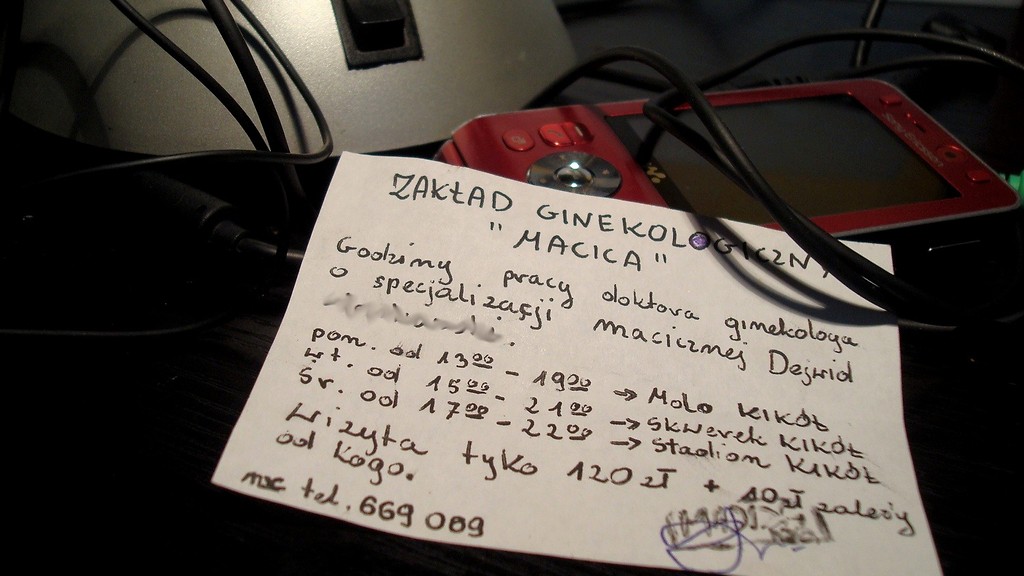 ZAKŁAD GINEKOLOGICZNY
"MACICA"
Godziny pracy doktora ginekologa
o specjalizacji macicznej Dejwid
pon. od 13⁰⁰ - 19⁰⁰ → Molo KIKÓŁ
wt. od 15⁰⁰ - 21⁰⁰ → Skwerek KIKÓŁ
śr. od 17⁰⁰ - 22⁰⁰ → Stadion KIKÓŁ
wizyta tyko 120 zł + 10zł zależy
od kogo.
tel. 669 089